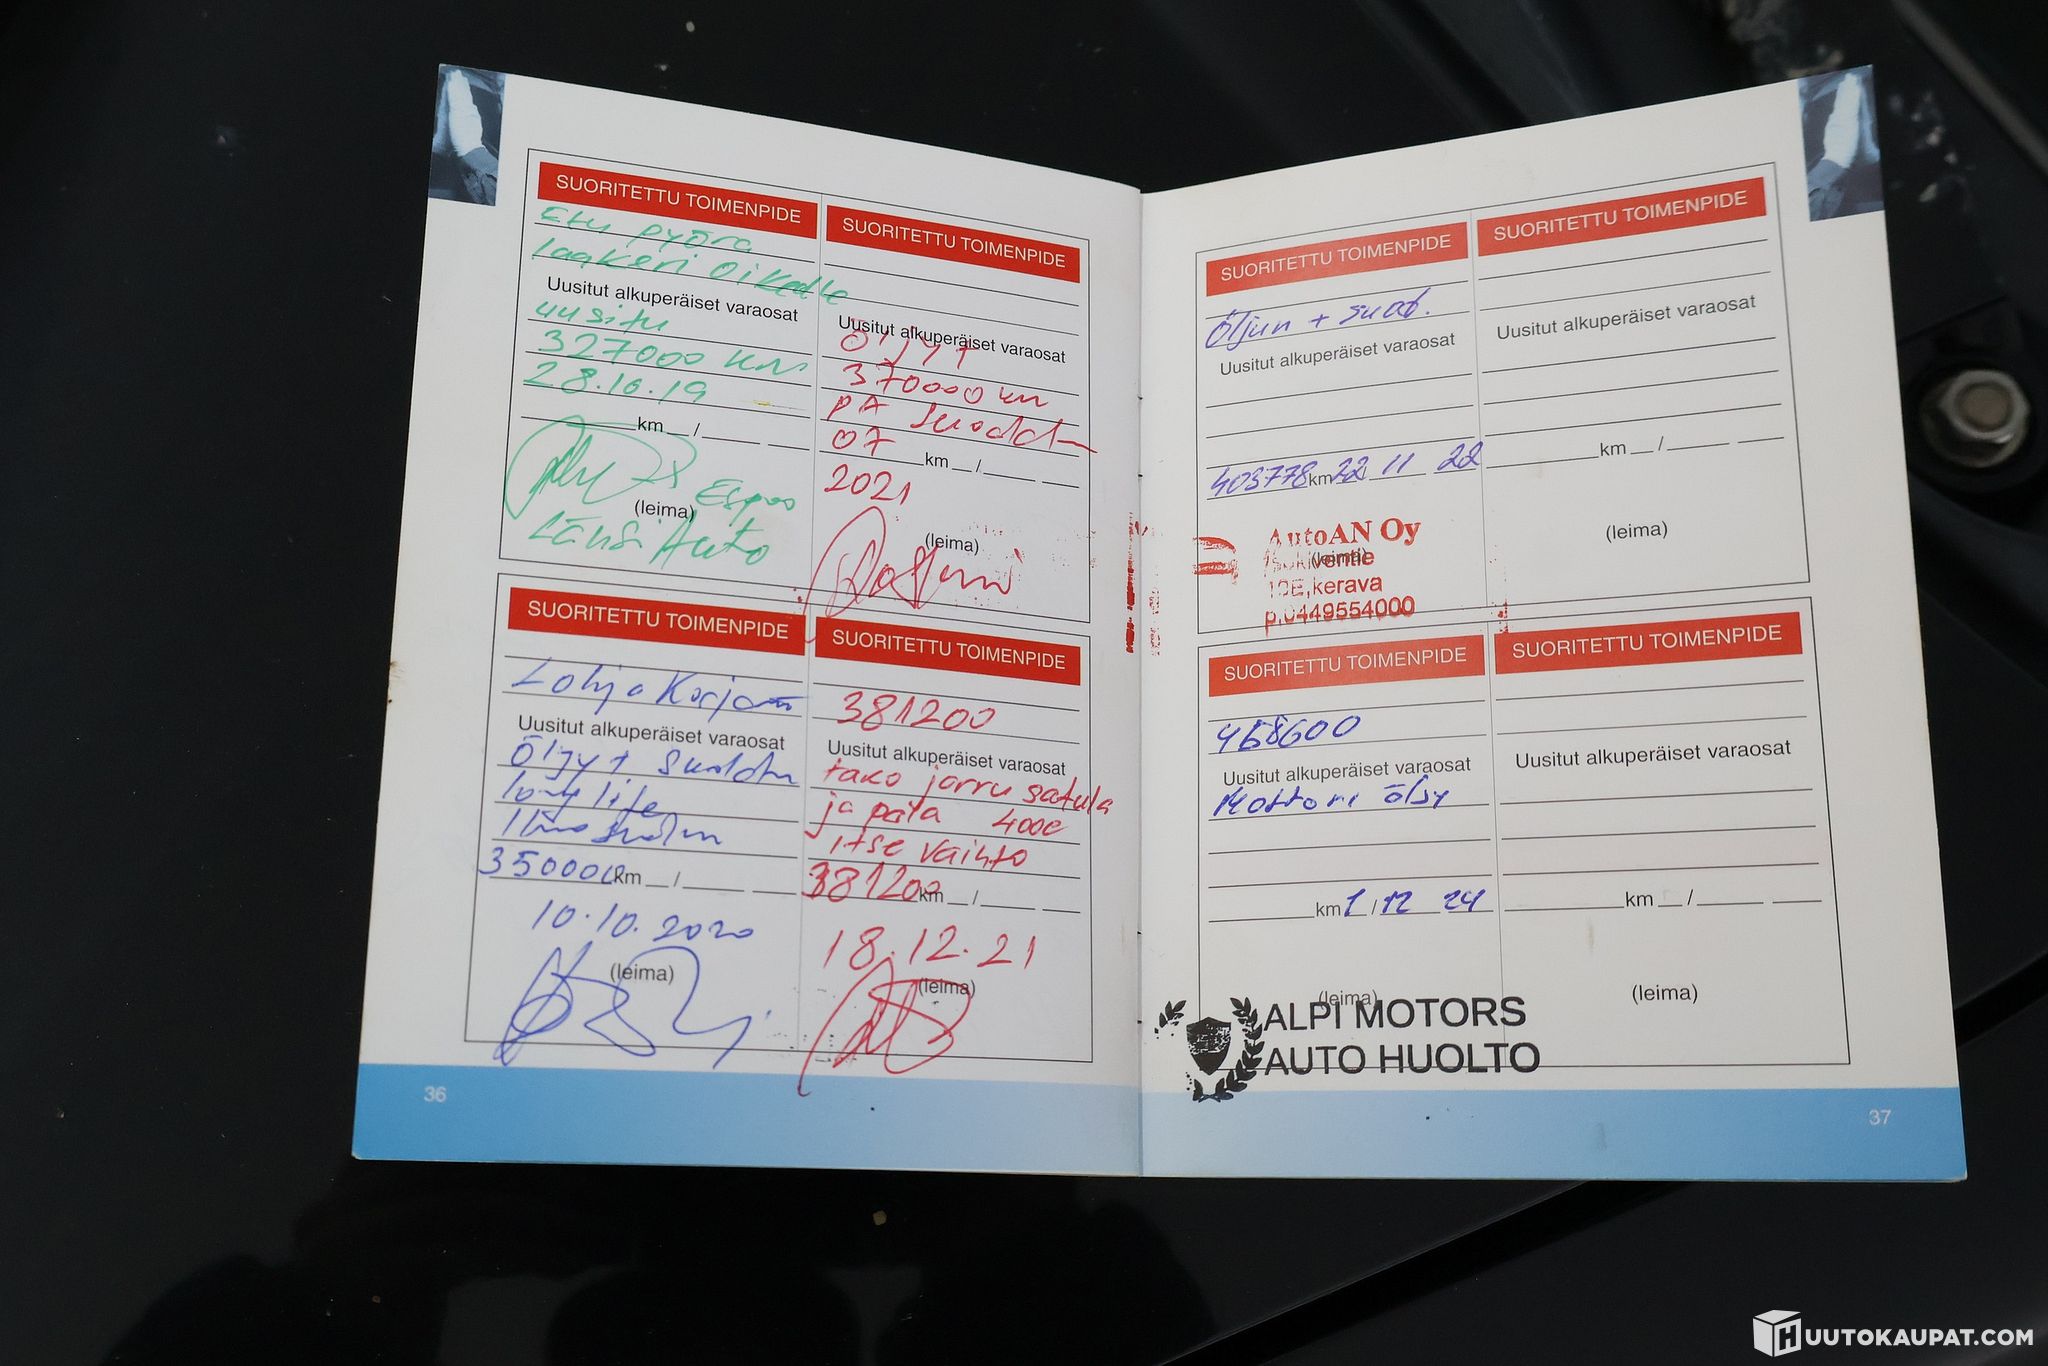 SUORITETTU TOIMENPIDE
Etu pyörä
laakeri oikealle
Uusitut alkuperäiset varaosat
uusittu
327000 km
28.10.19
km / 
(leima) Espoo
Länsi Auto
SUORITETTU TOIMENPIDE
Uusitut alkuperäiset varaosat
Öljyt
370000 km
PA
07
km /
2021
(leima)
SUORITETTU TOIMENPIDE
Lohja
Uusitut alkuperäiset varaosat
Öljyt
long life
350000 km /
10.10.2020
(leima)
SUORITETTU TOIMENPIDE
381200
Uusitut alkuperäiset varaosat
tako jarru satula
ja pala 400€
itse vaihto
381200 km /
18.12.21
(leima)
36
SUORITETTU TOIMENPIDE
Öljyn + suod.
Uusitut alkuperäiset varaosat
403778 km 22 11 22
AutoAN Oy
(leima)
kerava
p.0449554000
SUORITETTU TOIMENPIDE
Uusitut alkuperäiset varaosat
km /
(leima)
SUORITETTU TOIMENPIDE
Uusitut alkuperäiset varaosat
öljy
km 1 / 12 24
(leima)
ALPI MOTORS
AUTO HUOLTO
SUORITETTU TOIMENPIDE
Uusitut alkuperäiset varaosat
km /
(leima)
37
HUUTOKAUPAT.COM